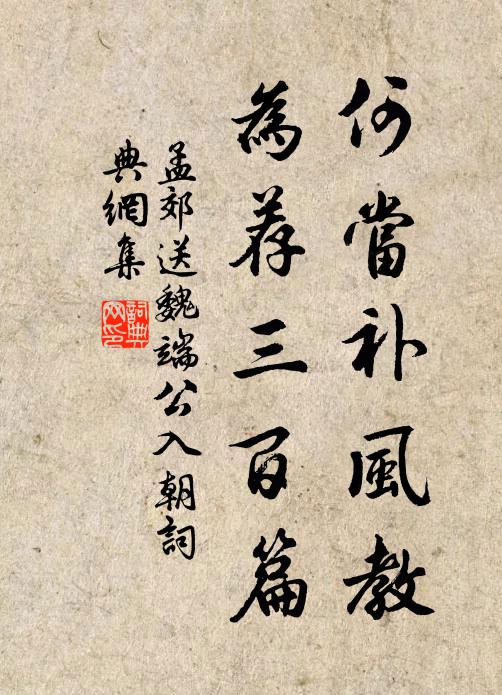 何當补風教
為荐三百篇
孟郊送魏端公入朝詞
典網集
詞典网印